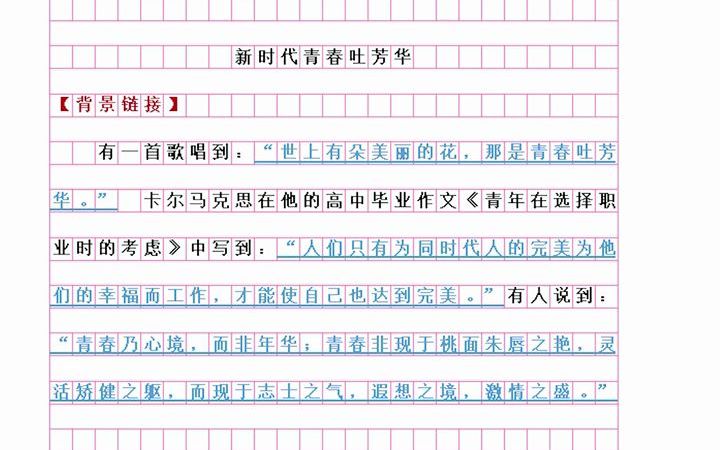 新时代青春吐芳华
【背景链接】
有一首歌唱到：“世上有朵美丽的花，那是青春吐芳
华。” 卡尔马克思在他的高中毕业作文《青年在选择职
业时的考虑》中写到：“人们只有为同时代人的完美为他
们的幸福而工作，才能使自己也达到完美。”有人说到：
“青春乃心境，而非年华；青春非现于桃面朱唇之艳，灵
活矫健之躯，而现于志士之气，遐想之境，激情之盛。”